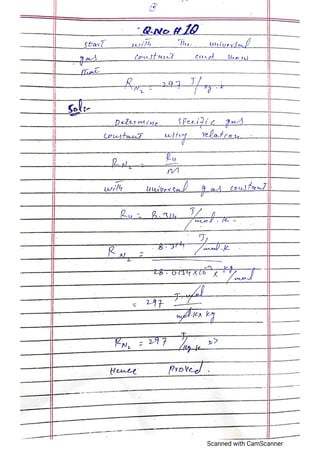 Q.No # 10
Start with The universal
gas constant and show
that
R_N₂ = 297 J/kg.k
Sol:-
Determine Specific gas
constant using relation.
R_N₂ = Ru/M
with universal gas constant.
Ru = 8.314 J/mol.k.
R_N₂ = 8.314 J/mol.k
28.0134×10⁻³ × kg/mol
= 297 J.mol
mol.k× kg
R_N₂ = 297 J/kg.k
Hence proved.
Scanned with CamScanner